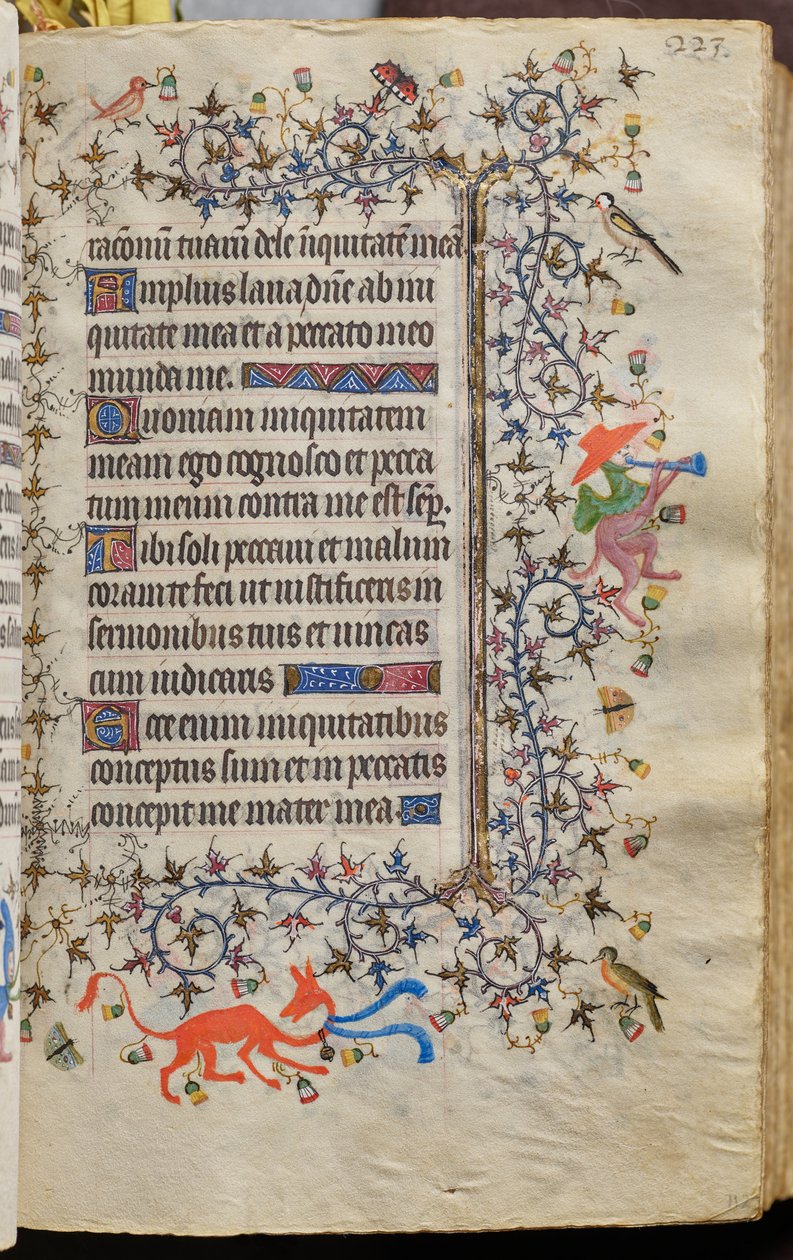 223.
racõnū tuarū dele īiquitatē meā
Amplius laua dn̄e ab ini
quitate mea et a peccato meo
munda me.
Quoniam iniquitatem
meam ego cognosco et pecca
tum meum contra me est semp̱.
Tibi soli peccaui et malum
coram te feci ut iustificeris in
sermonibus tuis et uincas
cum iudicaris
Ecce enim iniquitatibus
conceptus sum et in peccatis
concepit me mater mea.